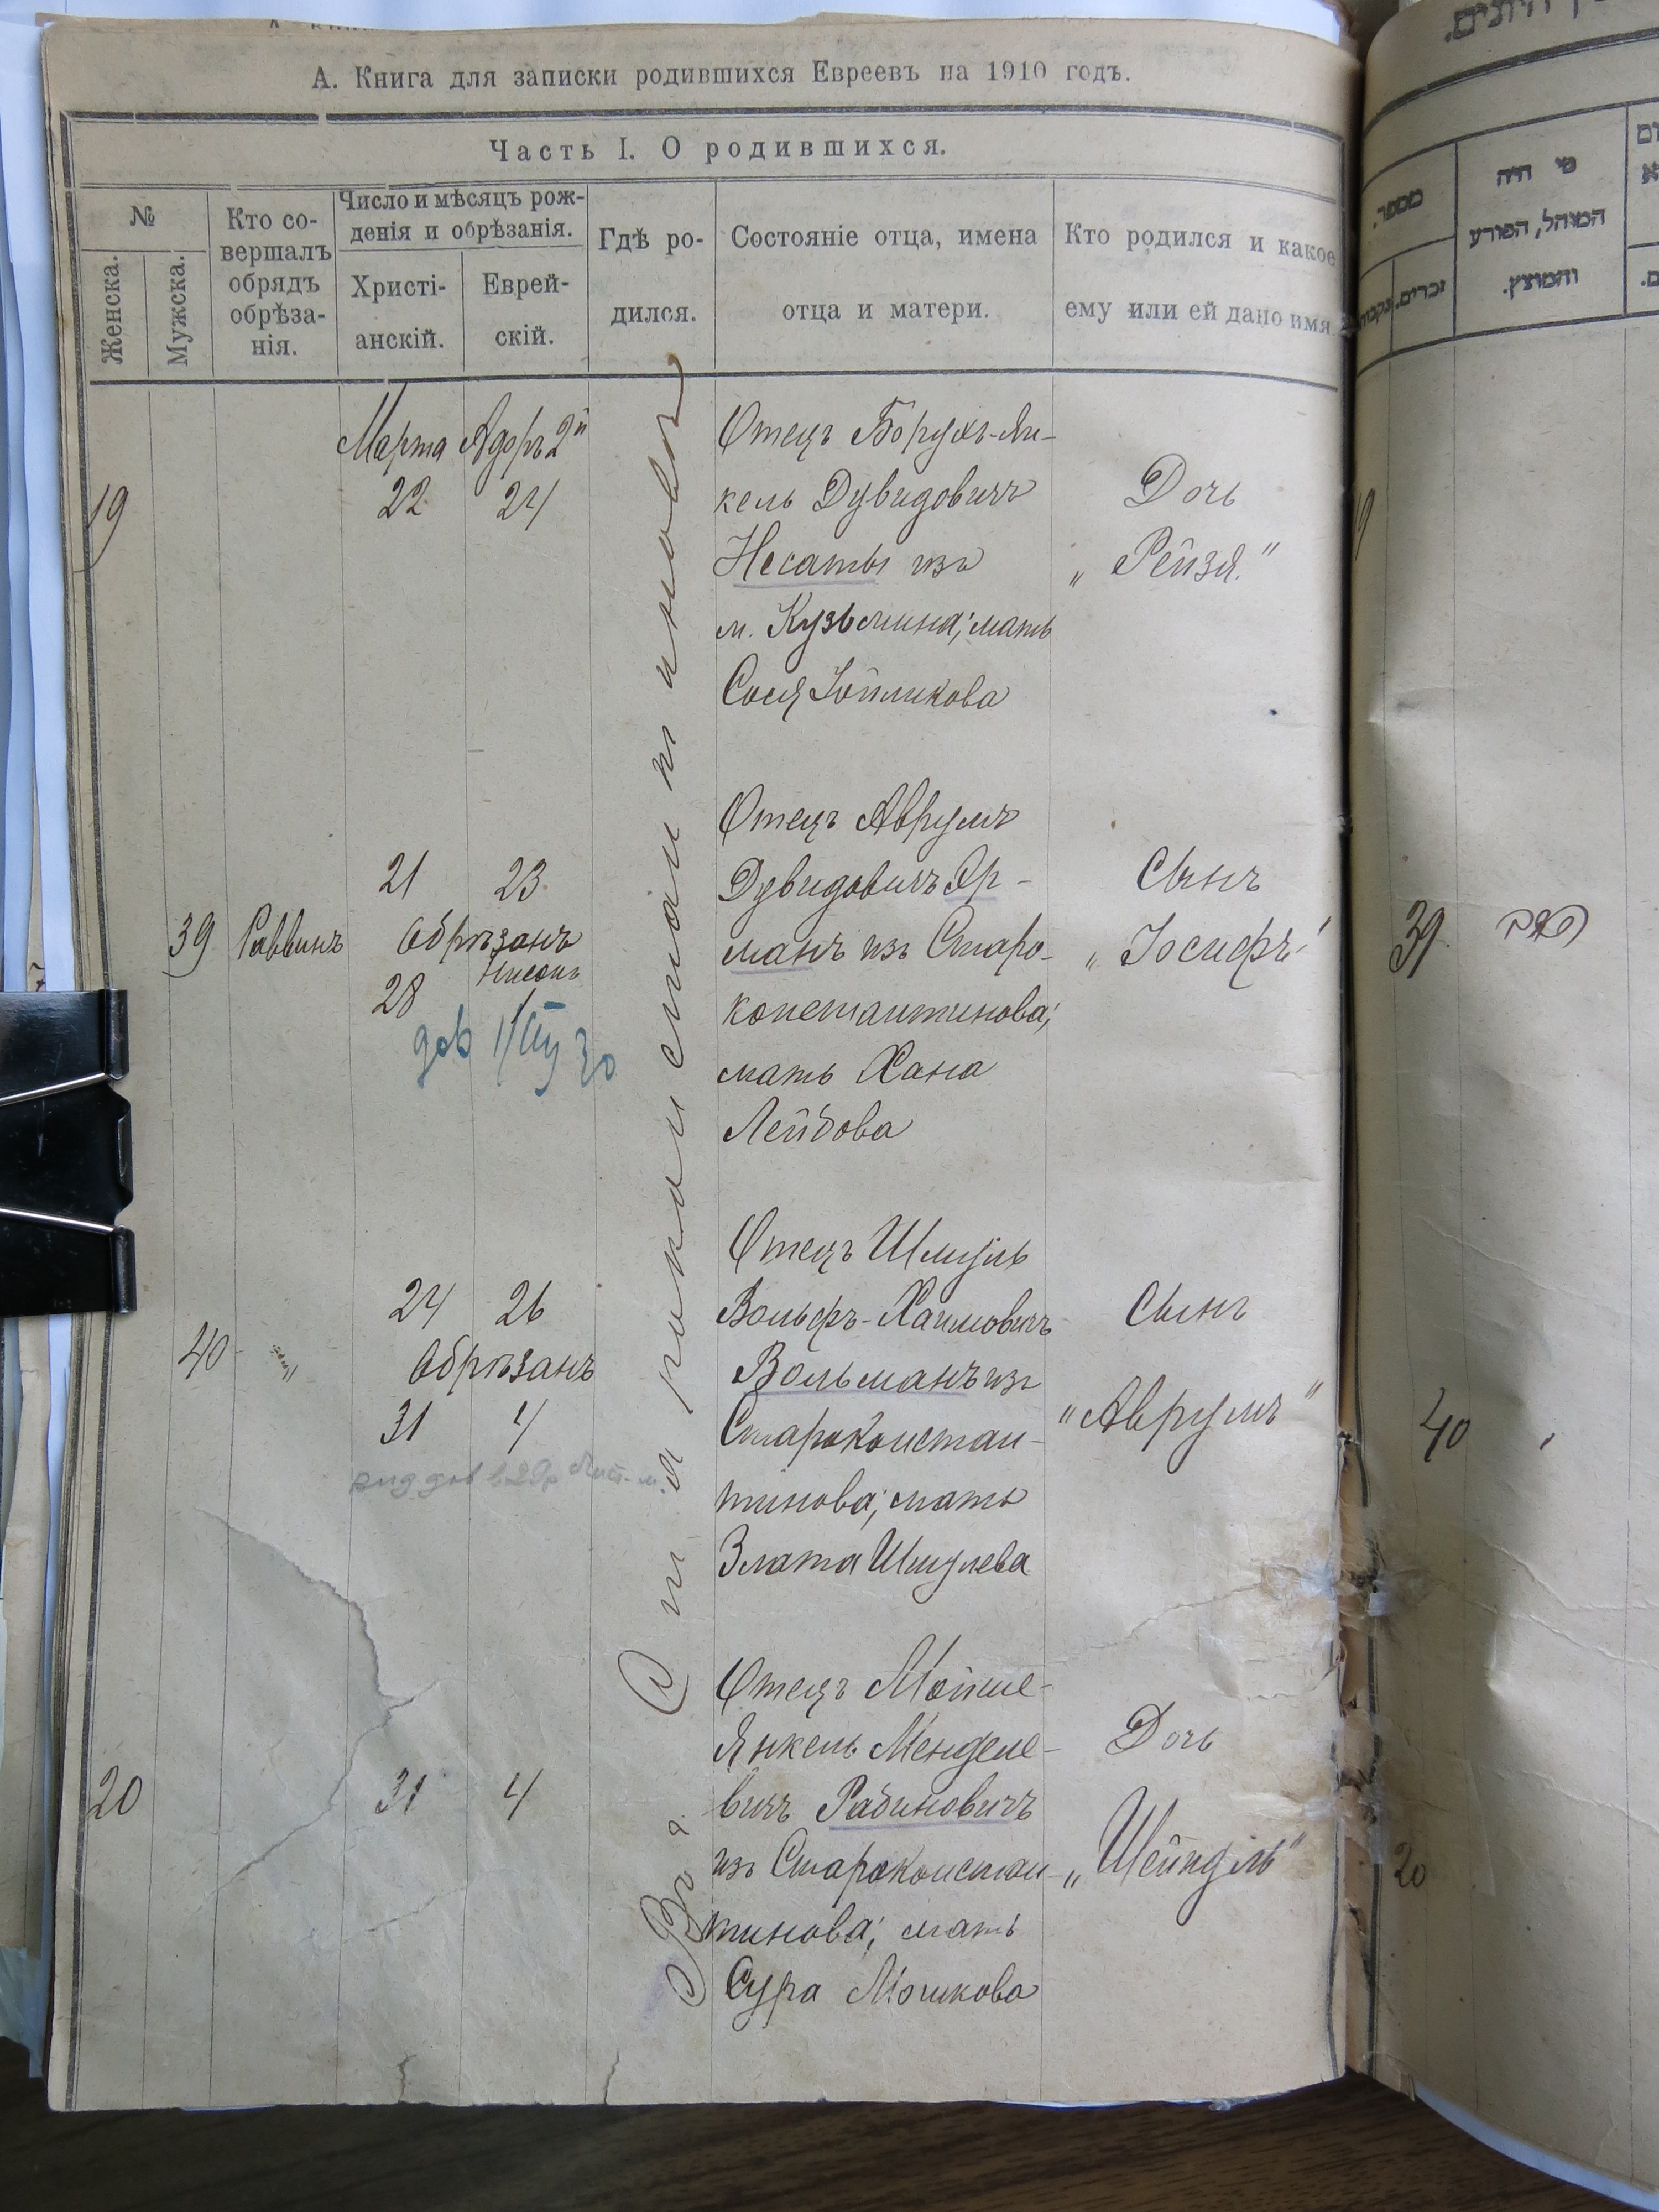 А. Книга для записки родившихся Евреевъ на 1910 годъ.
Часть I. О родившихся.
№
Женска.
Мужска.
Кто со-
вершалъ
обрядъ
обрѣза-
нія.
Число и мѣсяцъ рож-
денія и обрѣзанія.
Христі-
анскій.
Еврей-
скій.
Гдѣ ро-
дился.
Состояніе отца, имена
отца и матери.
Кто родился и какое
ему или ей дано имя
Въ г. Староконстантиновѣ
19
Марта Адоръ 2й
22 24
Отецъ Борухъ-Ян-
кель Дувидовичъ
Несаты изъ
м. Кузьмина; мать
Сося Іойликова
Дочь
„Рейзя."
39 Раввинъ
21 23
Обрѣзанъ
Нисонъ
28 1
Отецъ Аврумъ
Дувидовичъ Яр-
манъ изъ Старо-
константинова;
мать Хана
Лейбова
Сынъ
„Іосифъ"
40 "
24 26
Обрѣзанъ
31 4
Отецъ Шмуль
Вольфъ-Хаимовичъ
Вольманъ изъ
Староконстан-
тинова; мать
Злата Шмулева
Сынъ
"Аврумъ"
20
31 4
Отецъ Мойше-
Янкель Менделе-
вичъ Рабиновичъ
изъ Староконстан-
тинова; мать
Сура Мошкова
Дочь
„Шейндль"
מספר.
זכרים.
מי היה
המוהל, הפורע
והמוצץ.
39
40
20